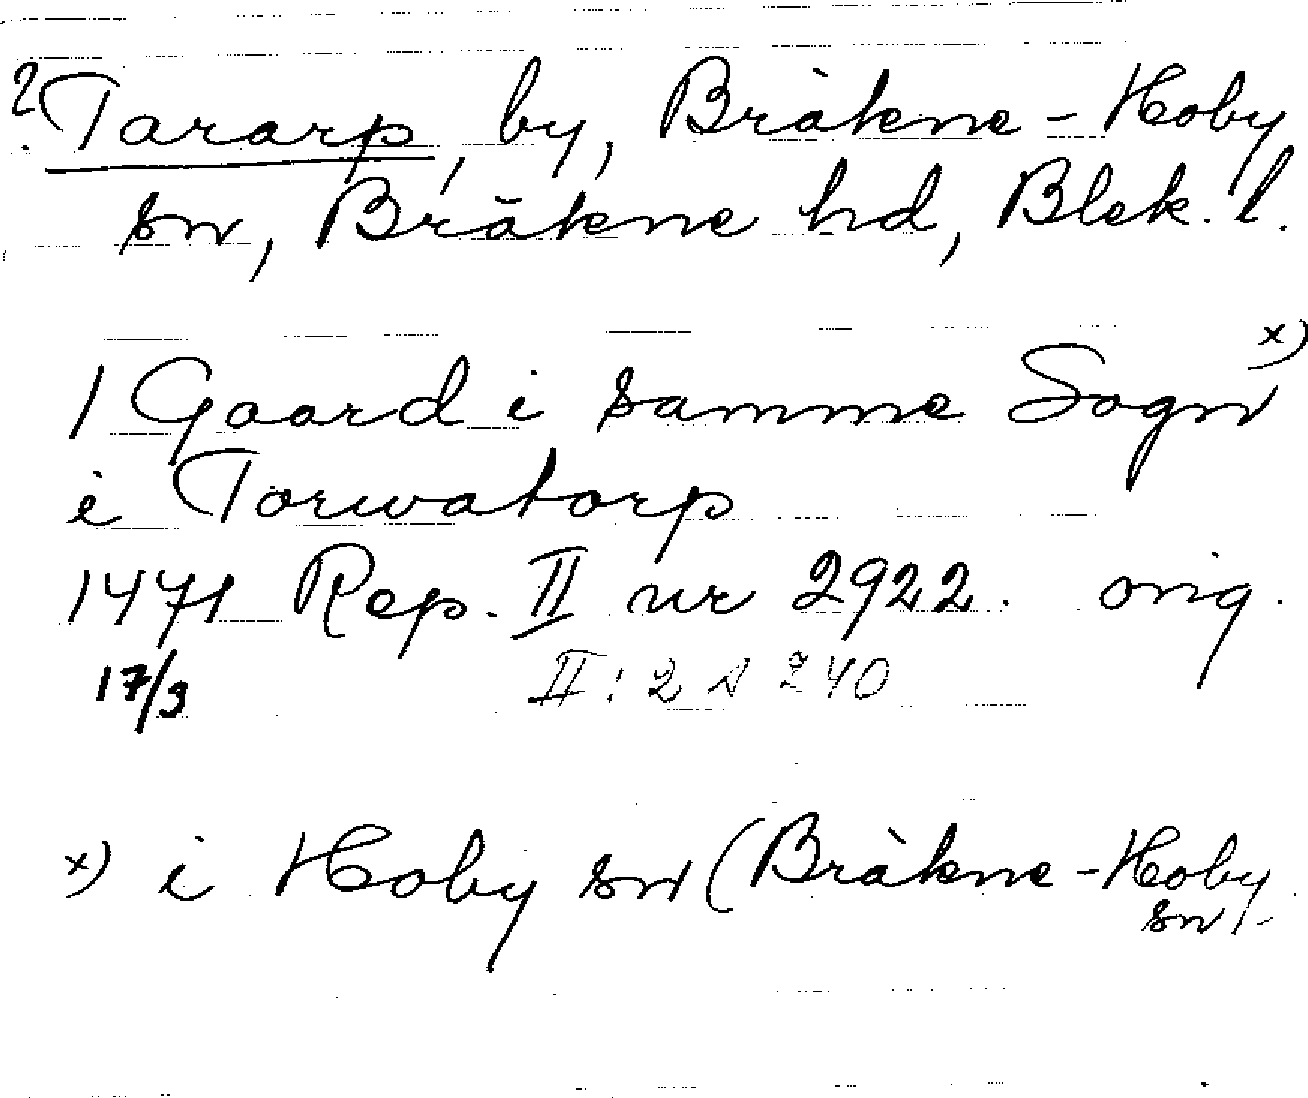 ? Tararp, by, Bräkne-Hoby
sn, Bräkne hd, Blek. l.
1 Gaard i samme Sogn x)
i Torwatorp
1471 Rep. II nr 2922. orig.
17/3 II:2 s 240
x) i Hoby sn (Bräkne-Hoby
sn).